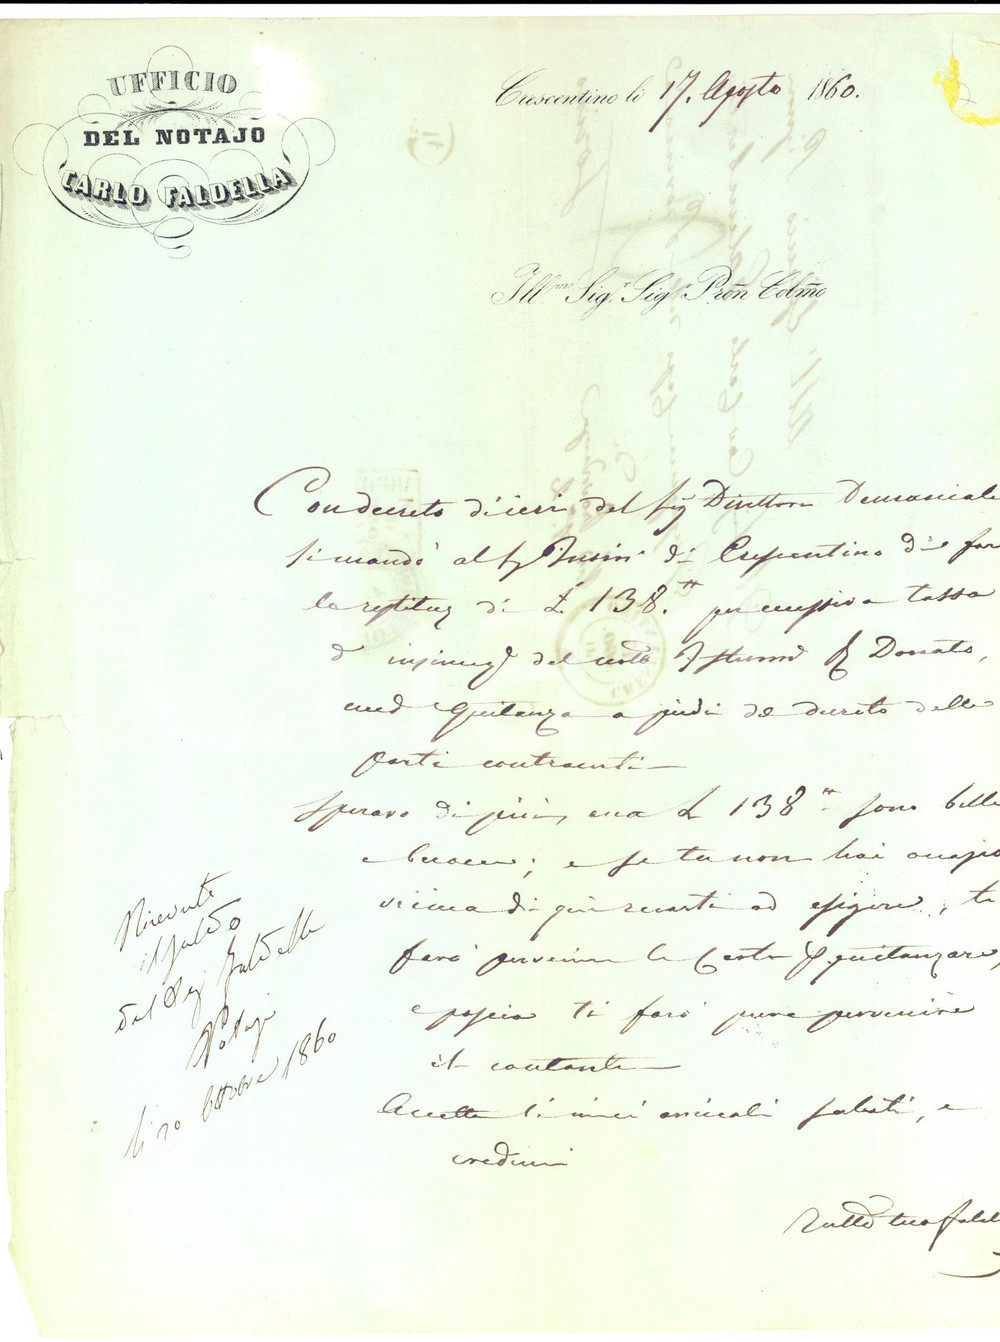 UFFICIO
DEL NOTAJO
CARLO FALDELLA
Crescentino li 17. Agosto 1860.
Ill.mo Sig.r Sig.r Pron Colmo
Con decreto d'ieri del Sig Direttore Demaniale
si mandò al Sig Insin.e di Crescentino di fare
la restituz di £ 138. per eccessiva tassa
d' insinuaz.e del noto Donato,
quitanza a piedi del decreto delle
parti contraenti
Speravo di più, ma £ 138 sono belle
e buone; e se tu non hai occasio
vicina di qui recarti ad esigere, ti
farò pervenire la Carta a quitanzare,
e poscia ti farò pure pervenire
il contante
Accetta li miei amicali saluti, e
credimi
Tutto tuo Falde
Ricevuto
il saldo
dal Sig Faldella
Notajo
li 20 Ottobre 1860